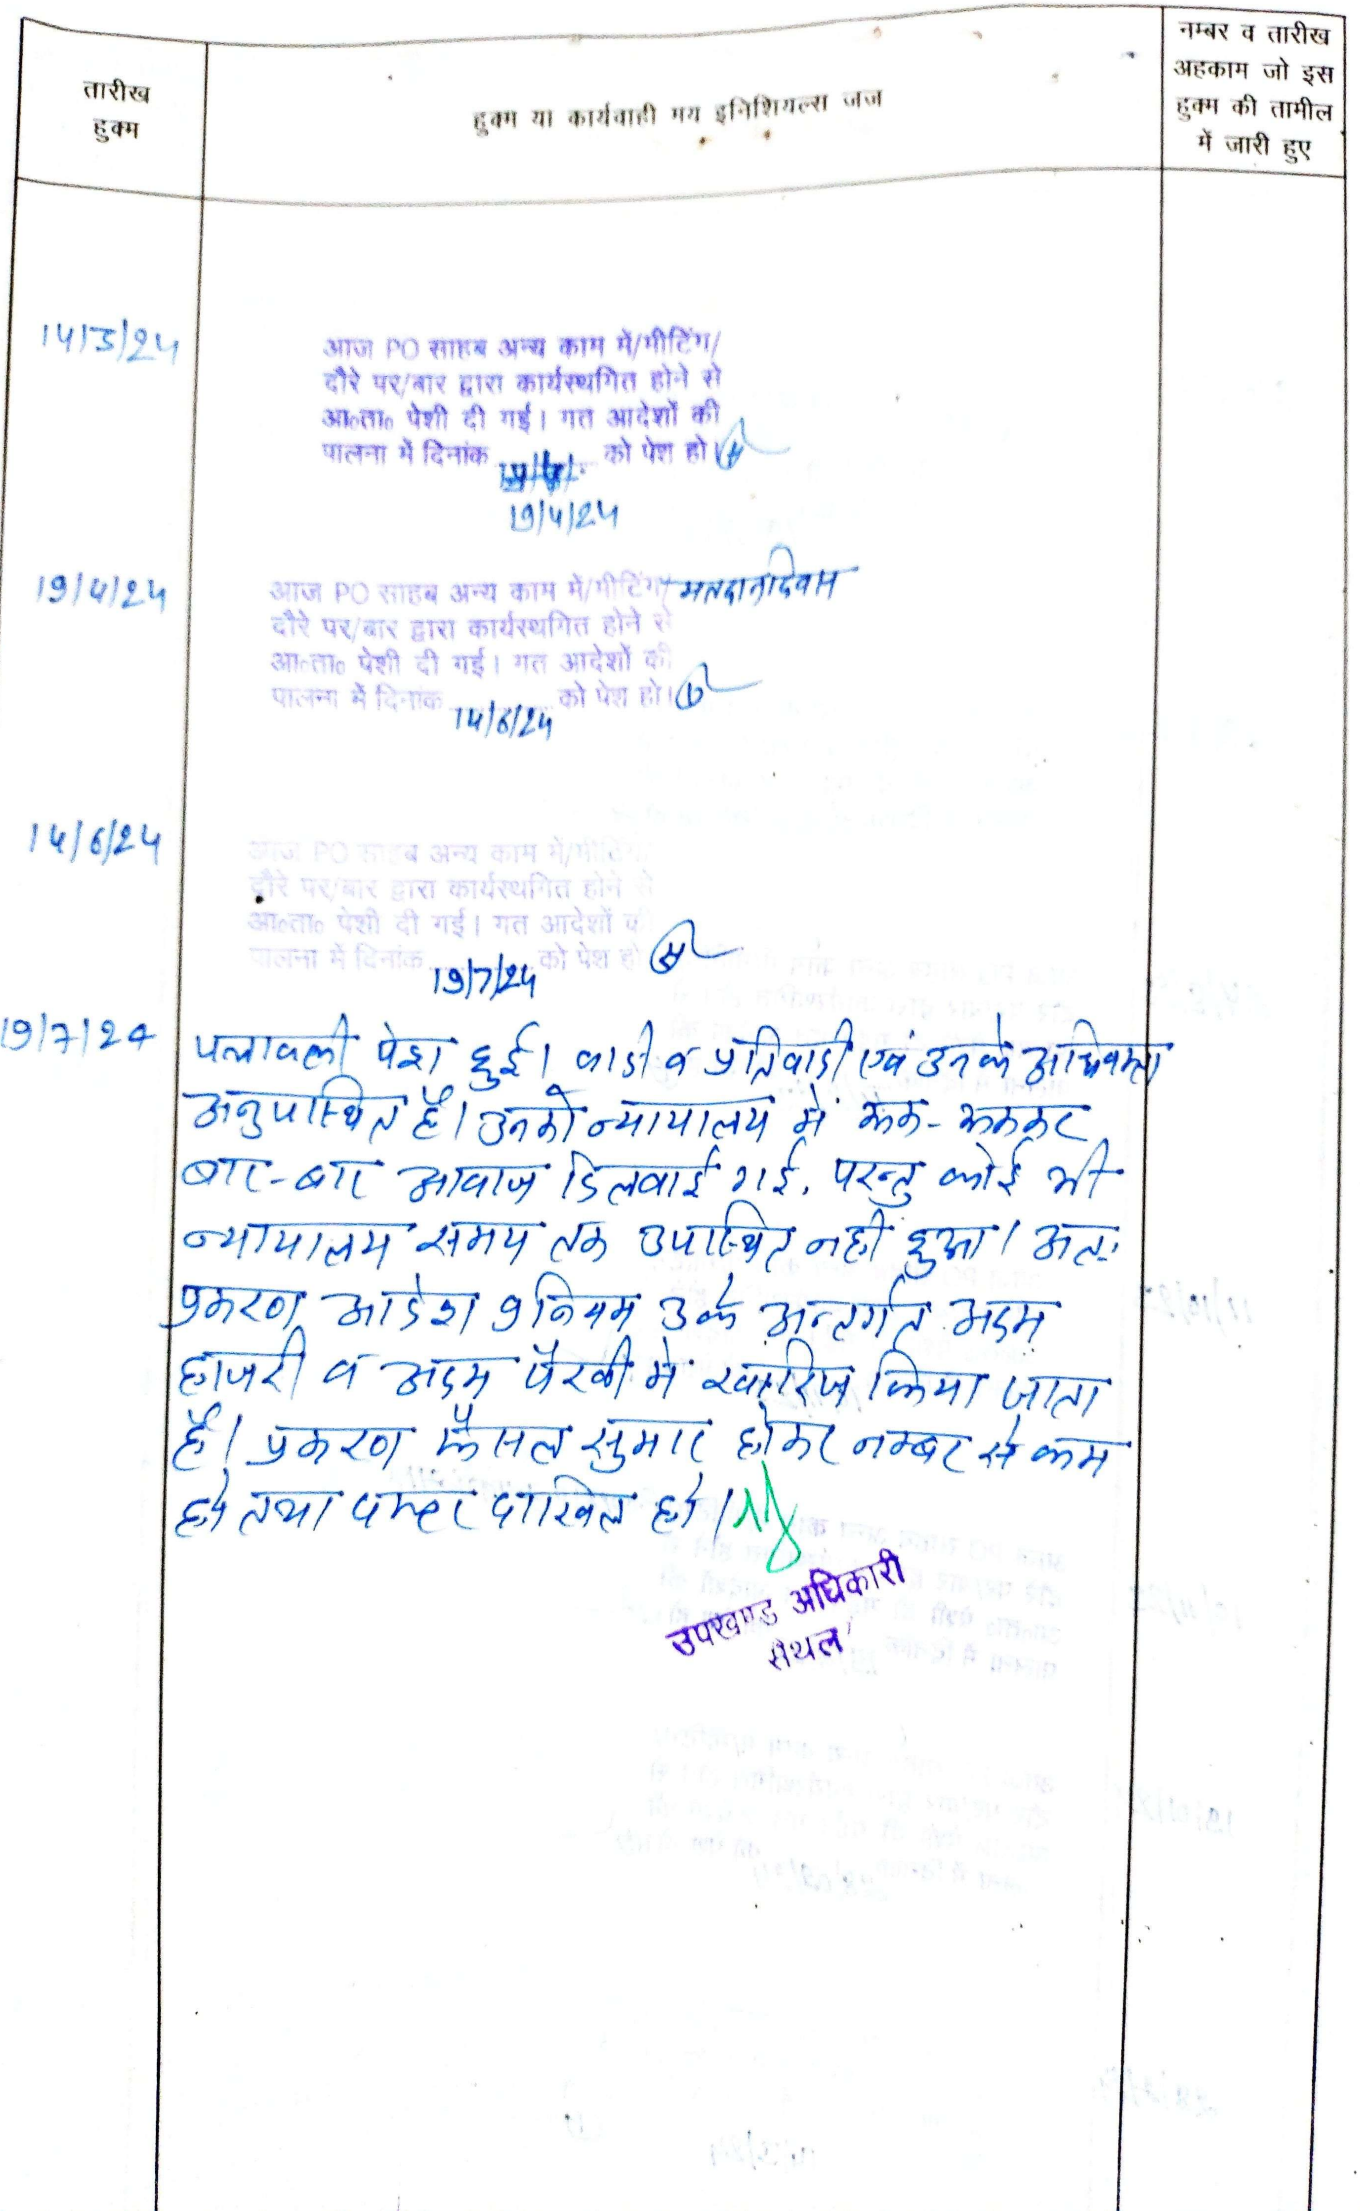 तारीख
हुक्म
हुक्म या कार्यवाही मय इनिशियल्स जज
नम्बर व तारीख
अहकाम जो इस
हुक्म की तामील
में जारी हुए
14/3/24
आज PO साहब अन्य काम में/मीटिंग/
दौरे पर/बार द्वारा कार्यस्थगित होने से
आ०ता० पेशी दी गई। गत आदेशों की
पालना में दिनांक ............ को पेश हो।
19/4/24
19/4/24
आज PO साहब अन्य काम में/मीटिंग/ मतदान दिवस
दौरे पर/बार द्वारा कार्यस्थगित होने से
आ०ता० पेशी दी गई। गत आदेशों की
पालना में दिनांक ............ को पेश हो।
14/6/24
14/6/24
आज PO साहब अन्य काम में/मीटिंग/
दौरे पर/बार द्वारा कार्यस्थगित होने से
आ०ता० पेशी दी गई। गत आदेशों की
पालना में दिनांक ............ को पेश हो
19/7/24
19/7/24
पत्रावली पेश हुई। वादी व प्रतिवादी एवं उनके अधिवक्ता
अनुपस्थित है। उनको न्यायालय में रूक-रूककर
बार-बार आवाज दिलवाई गई, परन्तु कोई भी
न्यायालय समय तक उपस्थित नही हुआ। अतः
प्रकरण आदेश 9 नियम 3 के अन्तर्गत अदम
हाजरी व अदम पैरवी में खारिज किया जाता
है। प्रकरण फैसल सुमार होकर नम्बर से कम
हो तथा दफ्तर दाखिल हो।
उपखण्ड अधिकारी
सैथल